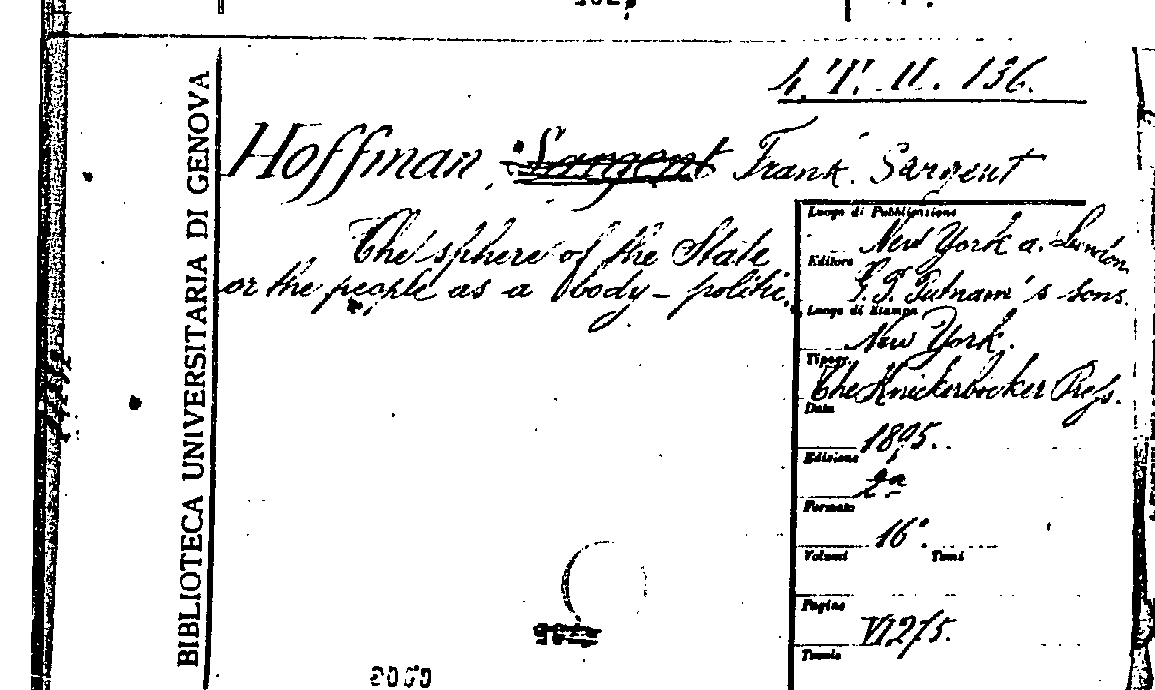 4. T. II. 136.
BIBLIOTECA UNIVERSITARIA DI GENOVA
Hoffman Sargent Frank Sargent
The sphere of the State
or the people as a body-politic
Luogo di Pubblicazione
New York a. London
Editore
G. P. Putnam's sons.
Luogo di Stampa
New York.
Tipogr.
The Knickerbocker Press.
Data
1895.
Edizione
2a
Formato
16°.
Volumi Tomi
Pagine
VI 275.
Tavole